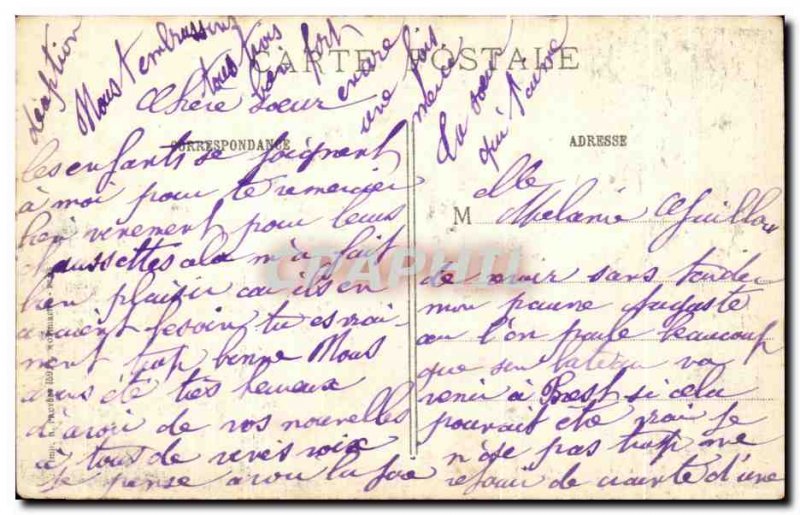 CARTE POSTALE
CORRESPONDANCE
ADRESSE
Chère Soeur
les enfants se joignent
à moi pour te remercier
bien vivement pour leurs
chaussettes cela m'a fait
bien plaisir car ils en
avaient besoin tu es vrai-
ment trop bonne Nous
avons été très heureux
d'avoir de vos nouvelles
à tous de
je pense avoir la joie
Elle
M Melanie Guillou
de sans tarder
mon pauvre Auguste
car l'on parle beaucoup
que son bateau va
venir à Brest si cela
pouvait être vrai je
n'ose pas trop me
réjouir de crainte d'une
déception
Nous t'embrassons
tous trois
bien fort
encore
une fois
merci
Ta soeur
qui t'aime
CPAPHIL